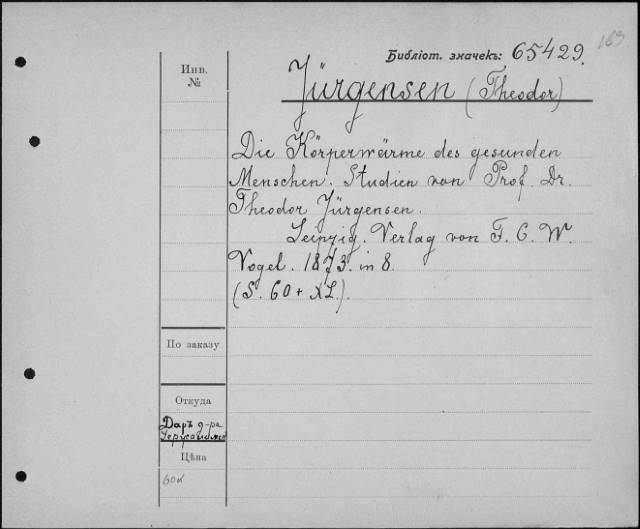 169
Библіот. значекъ: 65429.
Инв.
№
Jürgensen (Theodor)
Die Körperwärme des gesunden
Menschen. Studien von Prof. Dr.
Theodor Jürgensen.
Leipzig. Verlag von F. C. W.
Vogel. 1873. in 8.
(S. 60 + XL).
По заказу
Откуда
Даръ д-ра
Цѣна
60к